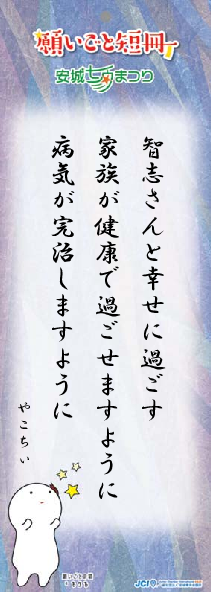 願いごと短冊
安城七夕まつり
智志さんと幸せに過ごす
家族が健康で過ごせますように
病気が完治しますように
やこちぃ
JCI